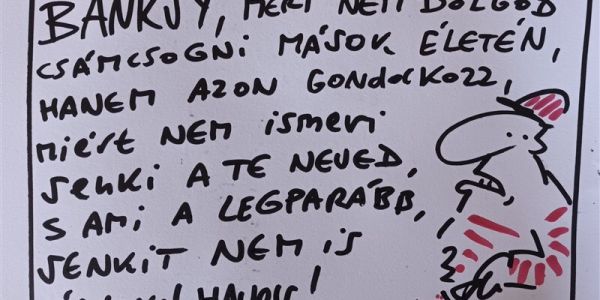 BANKSY, MERT NEM DOLGOD
CSÁMCSOGNI MÁSOK ÉLETÉN,
HANEM AZON GONDOLKOZZ,
MIÉRT NEM ISMERI
SENKI A TE NEVED,
S AMI A LEGPARÁBB,
SENKIT NEM IS